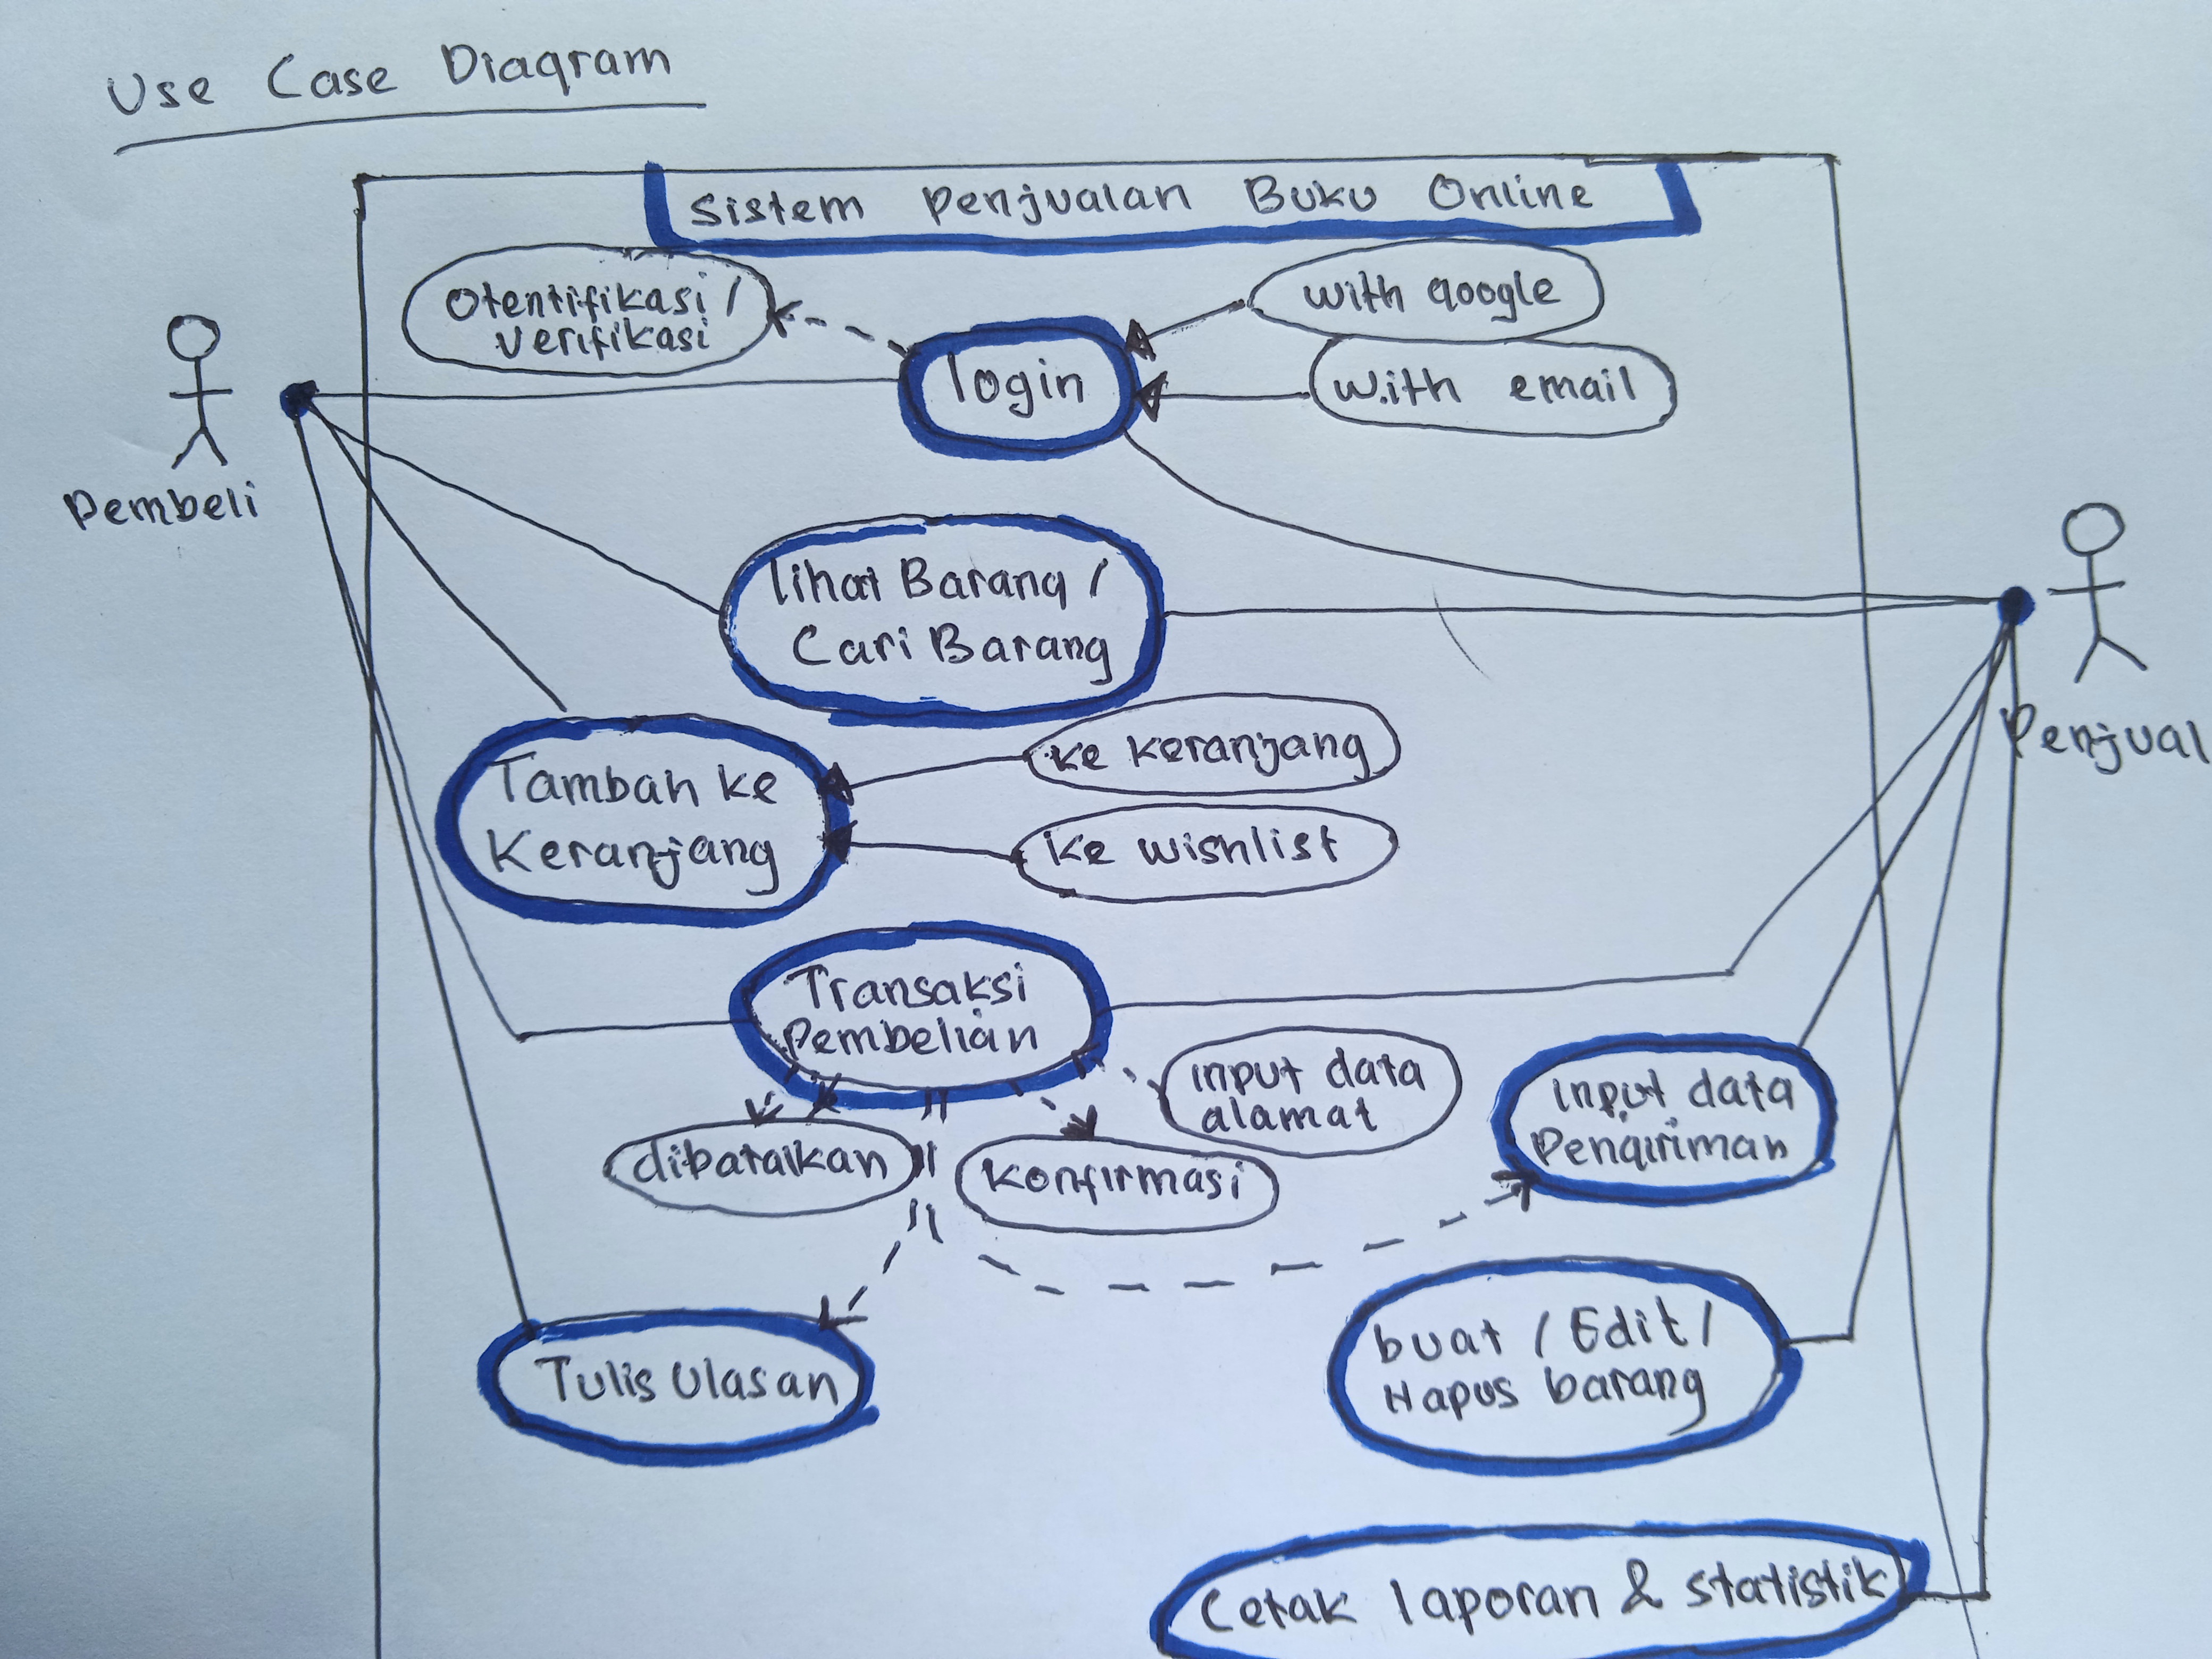 Use Case Diagram
Sistem Penjualan Buku Online
Otentifikasi /
verifikasi
with google
login
with email
Pembeli
lihat Barang /
Cari Barang
Penjual
ke keranjang
Tambah ke
Keranjang
ke wishlist
Transaksi
Pembelian
input data
alamat
input data
Pengiriman
dibatalkan
Konfirmasi
buat / Edit /
Hapus barang
Tulis Ulasan
Cetak laporan & statistik